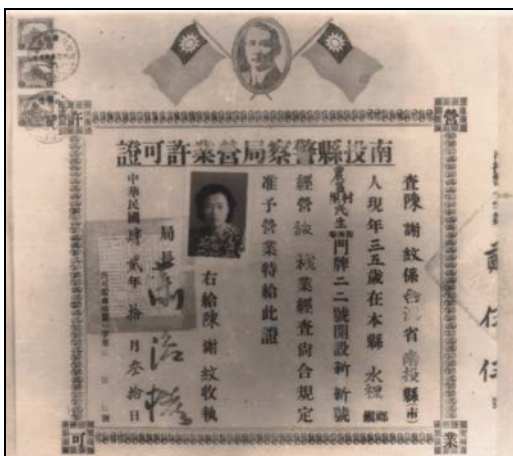 營業許可
南投縣警察局營業許可證
查陳謝紋係台灣省南投縣(市)
人現年三五歲在本縣水裡鄉鎮
村民生門牌二二號開設新新號
經營旅棧業經查尚合規定
准予營業特給此證
右給陳謝紋收執
局長
中華民國肆貳年拾月叁拾日